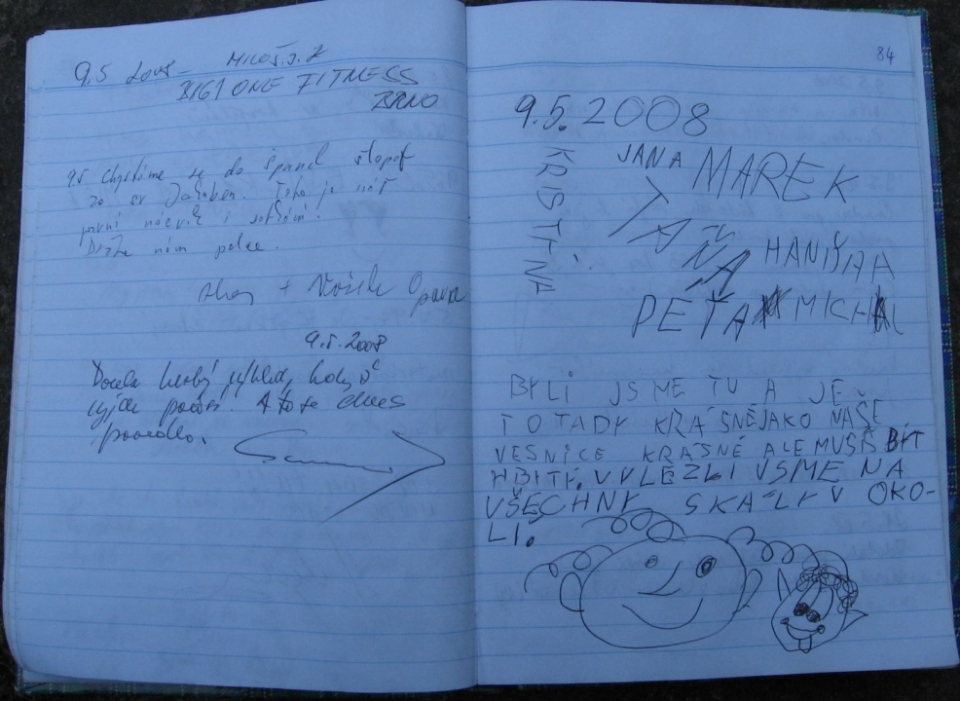 9.5 2008 - MILOŠ J. Z
BIG1 ONE FITNESS
BRNO
9.5 Chystáme se do Španěl stopot
za sv Jakubem. Toto je náš
první nácvik i setkání.
Držte nám palce.
+ Opava
9.5.2008
Docela hezký výhled, když
vyjde počasí. A to se dnes
povedlo.
84
9.5.2008
KRISTÝNA
JANA MAREK
TÁŇA
HANIYAA
PEŤA MICHAL
BYLI JSME TU A JE
TO TADY KRÁSNĚJAKO NAŠE
VESNICE KRÁSNÉ ALE MUSÍŠ BÝT
HBITÝ. VYLEZLI JSME NA
VŠECHNY SKÁLY V OKO-
LÍ.